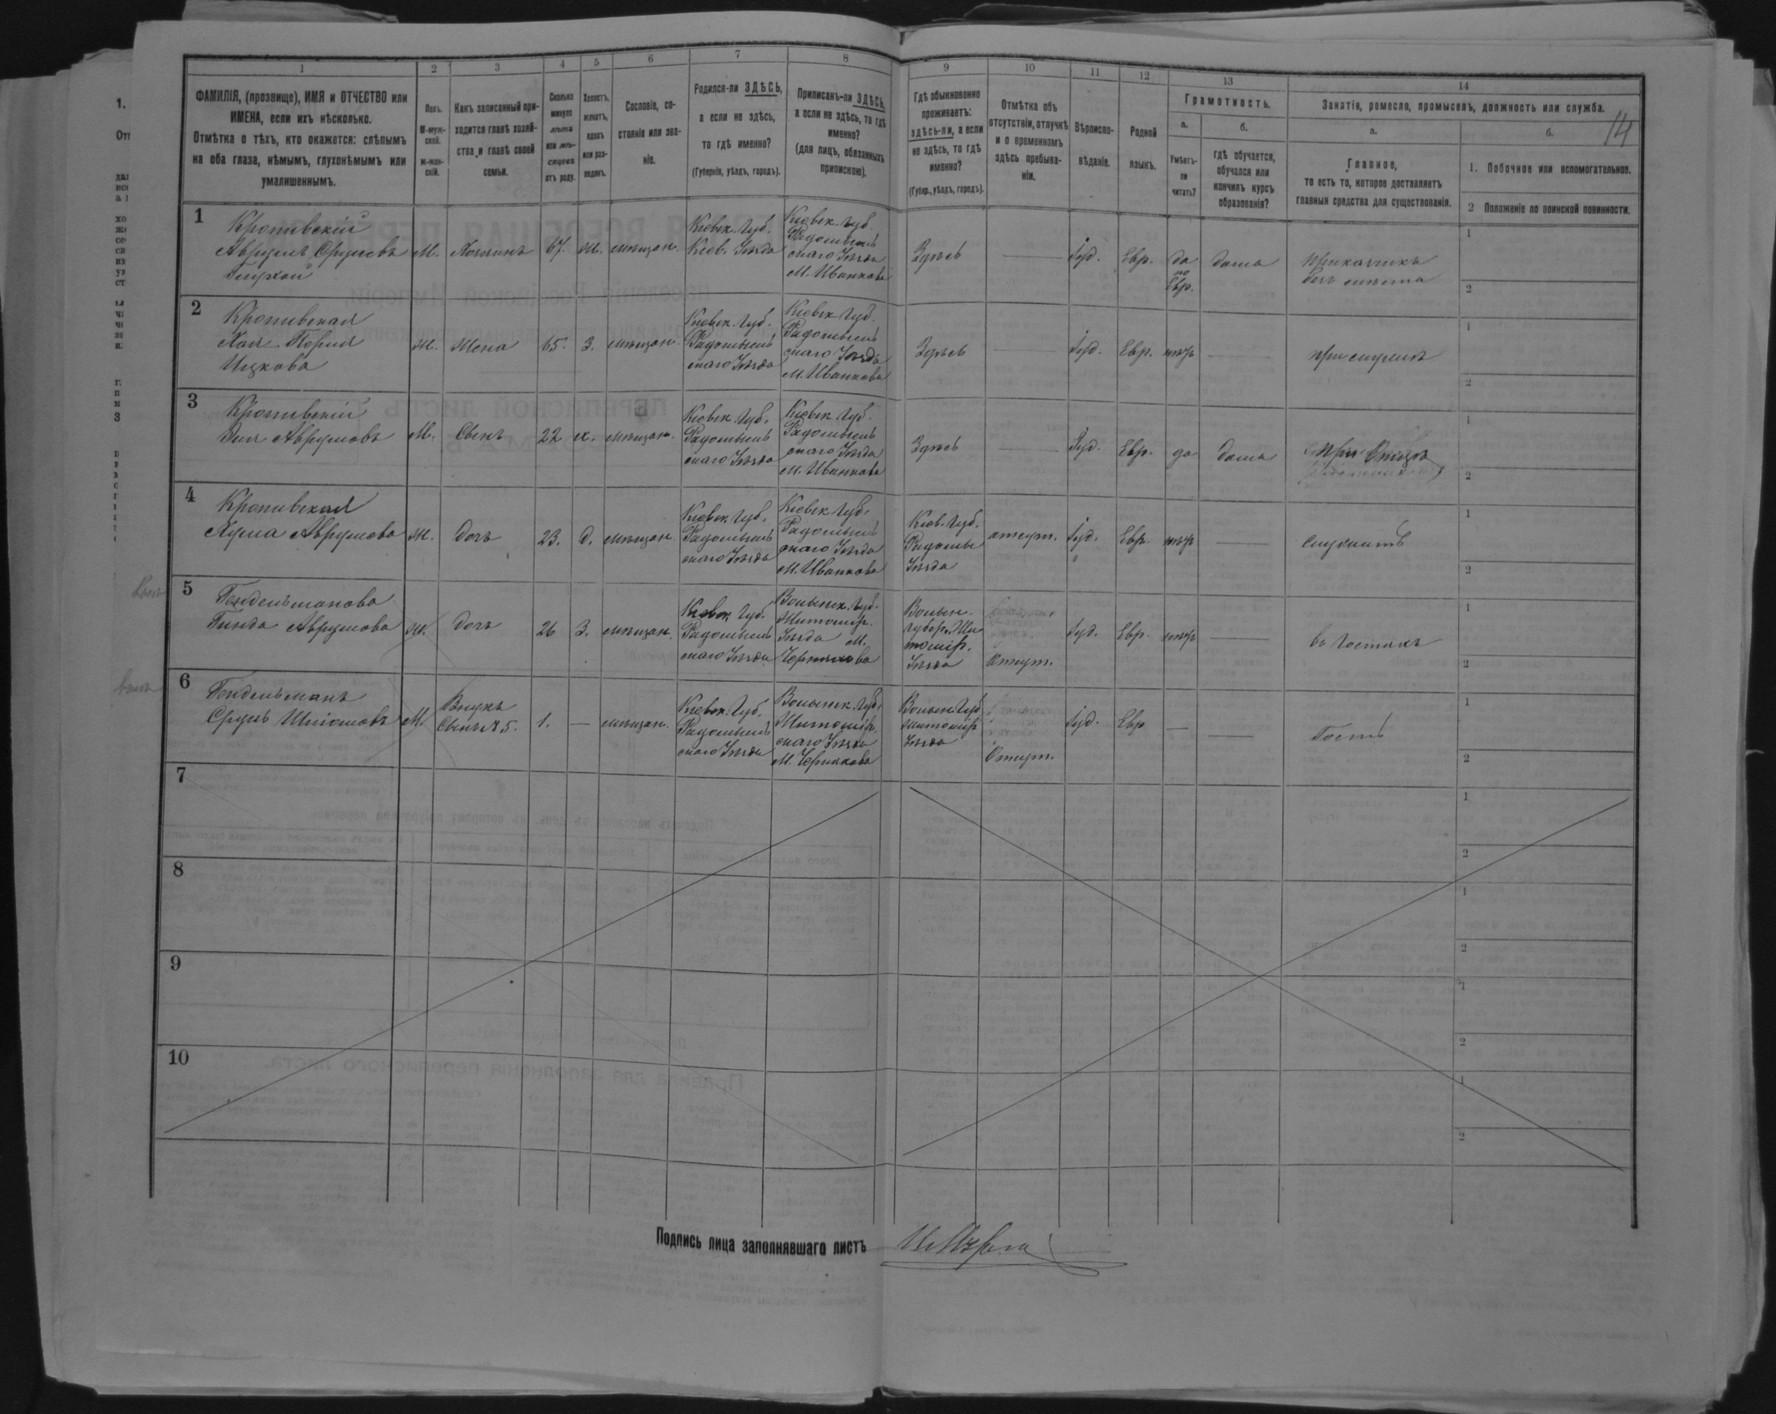 14
1 2 3 4 5 6 7 8 9 10 11 12 13 14
ФАМИЛІЯ, (прозвище), ИМЯ и ОТЧЕСТВО или
ИМЕНА, если ихъ нѣсколько.
Отмѣтка о тѣхъ, кто окажется: слѣпымъ
на оба глаза, нѣмымъ, глухонѣмымъ или
умалишеннымъ.
Полъ.
М-муж-
ской.
Ж-жен-
скій.
Какъ записанный при-
ходится главѣ хозяй-
ства и главѣ своей
семьи.
Сколько
минуло
лѣтъ
или мѣ-
сяцевъ
отъ роду.
Холостъ,
женатъ,
вдовъ
или раз-
веденъ.
Сословіе, со-
стояніе или зва-
ніе.
Родился-ли ЗДѢСЬ,
а если не здѣсь,
то гдѣ именно?
(Губернія, уѣздъ, городъ).
Приписанъ-ли ЗДѢСЬ,
а если не здѣсь, то гдѣ
именно?
(для лицъ, обязанныхъ
припискою).
Гдѣ обыкновенно
проживаетъ:
здѣсь-ли, а если
не здѣсь, то гдѣ
именно?
(Губер., уѣздъ, городъ).
Отмѣтка объ
отсутствіи, отлучкѣ
и о временномъ
здѣсь пребыва-
ніи.
Вѣроиспо-
вѣданіе.
Родной
языкъ.
Грамотность.
а.
Умѣетъ-
ли
читать?
б.
гдѣ обучается,
обучался или
кончилъ курсъ
образованія?
Занятіе, ремесло, промыселъ, должность или служба.
а.
Главное,
то есть то, которое доставляетъ
главныя средства для существованія.
б.
1. Побочное или вспомогательное.
2 Положеніе по воинской повинности.
1
Кропивскій
Аврумъ Срулевъ
глухой
М. Хозяинъ 67. ж. мѣщан.
Кіевск. Губ.
Кіев. Уѣзда
Кіевск. Губ.
Радомысль
скаго Уѣзда
М. Иванкова
Здѣсь
Іуд. Евр.
да
по
Евр.
дома
прикащикъ
1
2
2
Кропивская
Хая
Ицкова
Ж. Жена 65. З. мѣщан.
Кіевск. Губ.
Радомысль
скаго Уѣзда
Кіевск. Губ.
Радомысль
скаго Уѣзда
М. Иванкова
Здѣсь
Іуд. Евр. нѣтъ
при мужѣ
1
2
3
Кропивскій
Аврумовъ
М. Сынъ 22 х. мѣщан.
Кіевск. Губ.
Радомысль
скаго Уѣзда
Кіевск. Губ.
Радомысль
скаго Уѣзда
М. Иванкова
Здѣсь
Іуд. Евр. да дома
при Отцѣ
1
2
4
Кропивская
Аврумова
Ж. Дочь 23. д. мѣщан.
Кіевск. Губ.
Радомысль
скаго Уѣзда
Кіевск. Губ.
Радомысль
скаго Уѣзда
М. Иванкова
Кіев. Губ.
Радомы
Уѣзда
отсут.
Іуд. Евр. нѣтъ
служитъ
1
2
5
Гендельманова
Гинда Аврумова
Ж. Дочь 26 З. мѣщан.
Кіевск. Губ.
Радомысль
скаго Уѣзда
Волынск. Губ.
Житомір.
Уѣзда М.
Волын.
губер. Жи
томір.
Уѣзда
Отсут.
Іуд. Евр. нѣтъ
въ гостяхъ
1
2
6
Гендельманъ
Сруль
М.
Внукъ
Сынъ № 5.
1. мѣщан.
Кіевск. Губ.
Радомысль
скаго Уѣзда
Волынск. Губ.
Житомір.
скаго Уѣзда
Волын Губ
житомір
Уѣзда
Отсут.
Іуд. Евр
Гость
1
2
7
1
2
8
1
2
9
1
2
10
1
2
Подпись лица заполнявшаго листъ